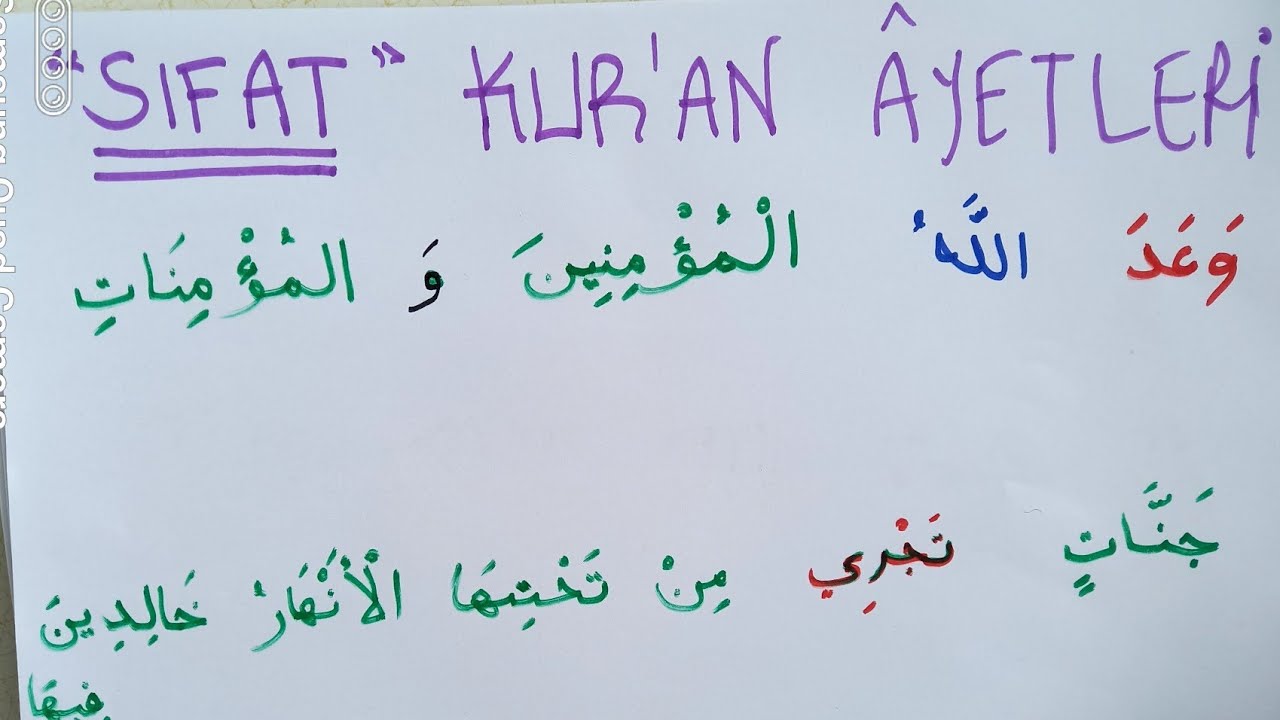 "SIFAT" KUR'AN ÂYETLERİ
وَعَدَ اللَّهُ الْمُؤْمِنِينَ وَ المُؤْمِنَاتِ
جَنَّاتٍ تَجْرِي مِنْ تَحْتِهَا الْأَنْهَارُ خَالِدِينَ
فِيهَا